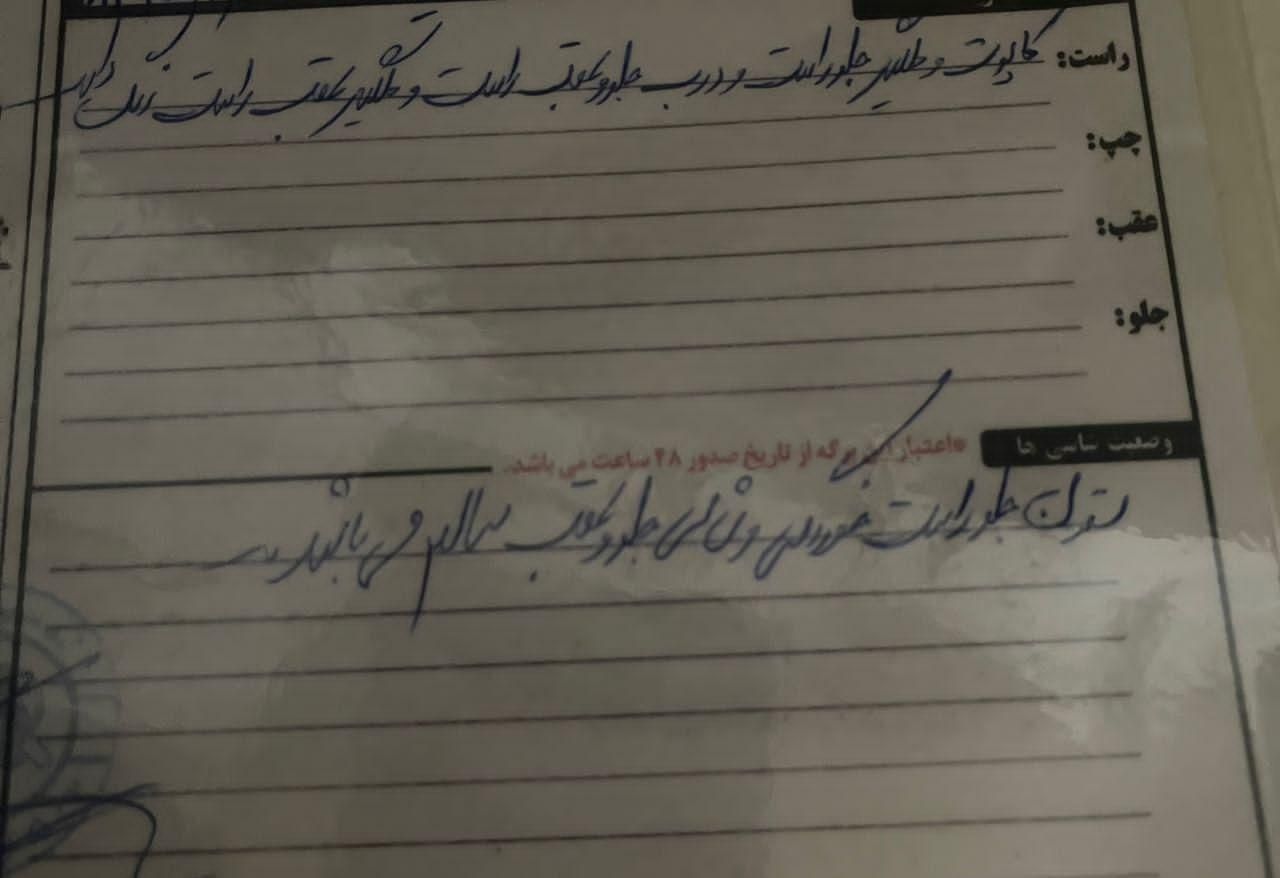 راست: کاپوت و گلگیر جلو راست و درب جلو و عقب راست و گلگیر عقب راست رنگ دارد
چپ:
عقب:
جلو:
وضعیت شاسی ها
*اعتبار این برگه از تاریخ صدور ۴۸ ساعت می باشد.
ستون جلو راست خوردگی و شاسی جلو و عقب سالم می باشد